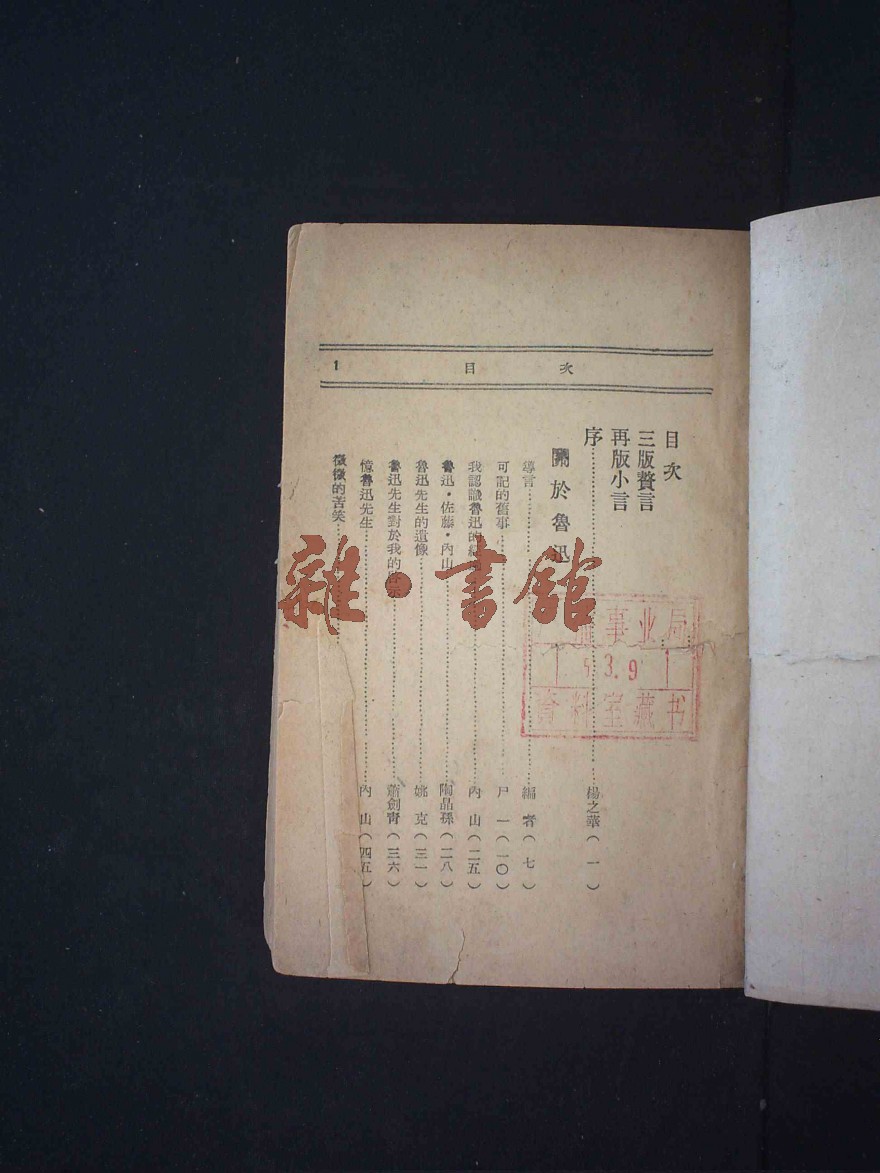 1 目 次
目次
三版贅言
再版小言
序 楊之華(一)
關於魯迅
導言 編者(七)
可記的舊事 尸一(一〇)
我認識魯迅的 內山(二五)
魯迅・佐藤・內山 陶晶孫(二八)
魯迅先生的遺像 姚克(三一)
魯迅先生對於我的 蕭劍青(三六)
憶魯迅先生 內山(四五)
微微的苦笑
雜・書館
事业局
3.9
資料室藏书